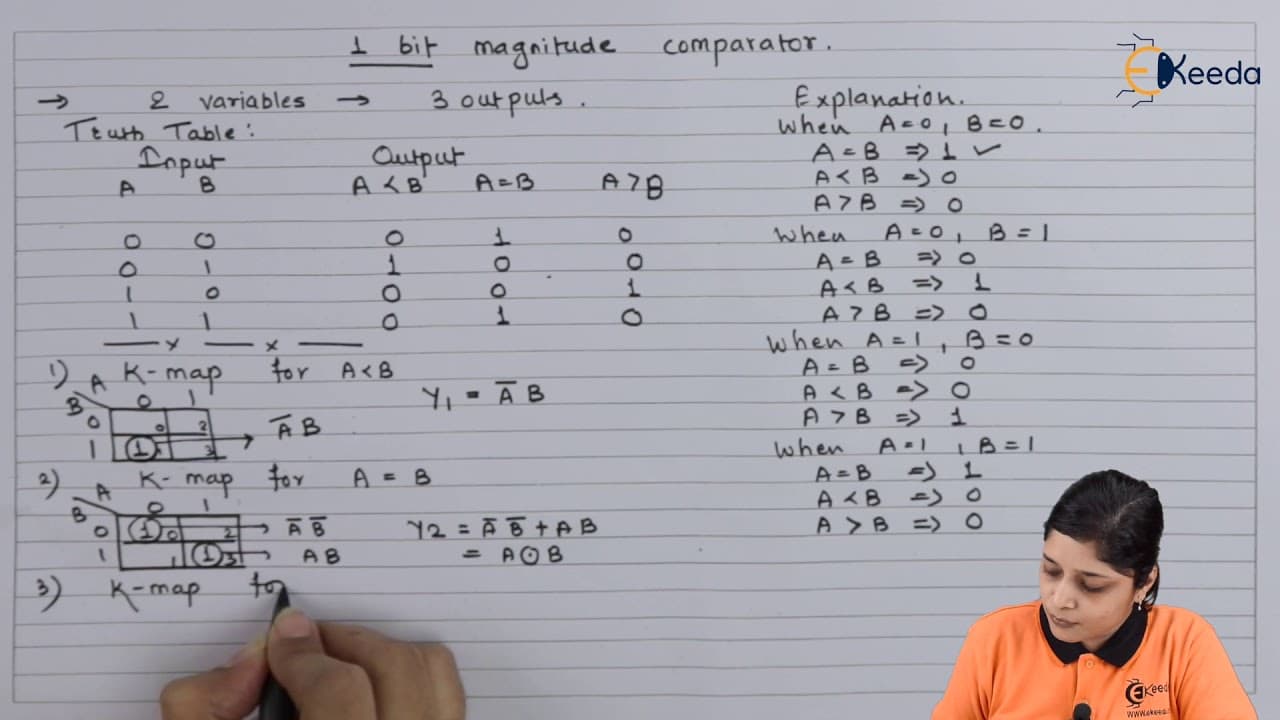 1 bit magnitude comparator.
→ 2 variables → 3 outputs.
Truth Table:
Input Output
A B A < B A = B A > B
0 0 0 1 0
0 1 1 0 0
1 0 0 0 1
1 1 0 1 0
1) K-map for A < B
A
B 0 1
0 0 2
1 1 3 → A̅ B
Y1 = A̅ B
2) K-map for A = B
A
B 0 1
0 1 0 2 → A̅ B̅
1 1 1 3 → A B
Y2 = A̅ B̅ + A B
= A ⊙ B
3) K-map for
Explanation.
When A = 0, B = 0.
A = B => 1 ✓
A < B => 0
A > B => 0
When A = 0, B = 1
A = B => 0
A < B => 1
A > B => 0
When A = 1, B = 0
A = B => 0
A < B => 0
A > B => 1
When A = 1, B = 1
A = B => 1
A < B => 0
A > B => 0
EKeeda
EKeeda